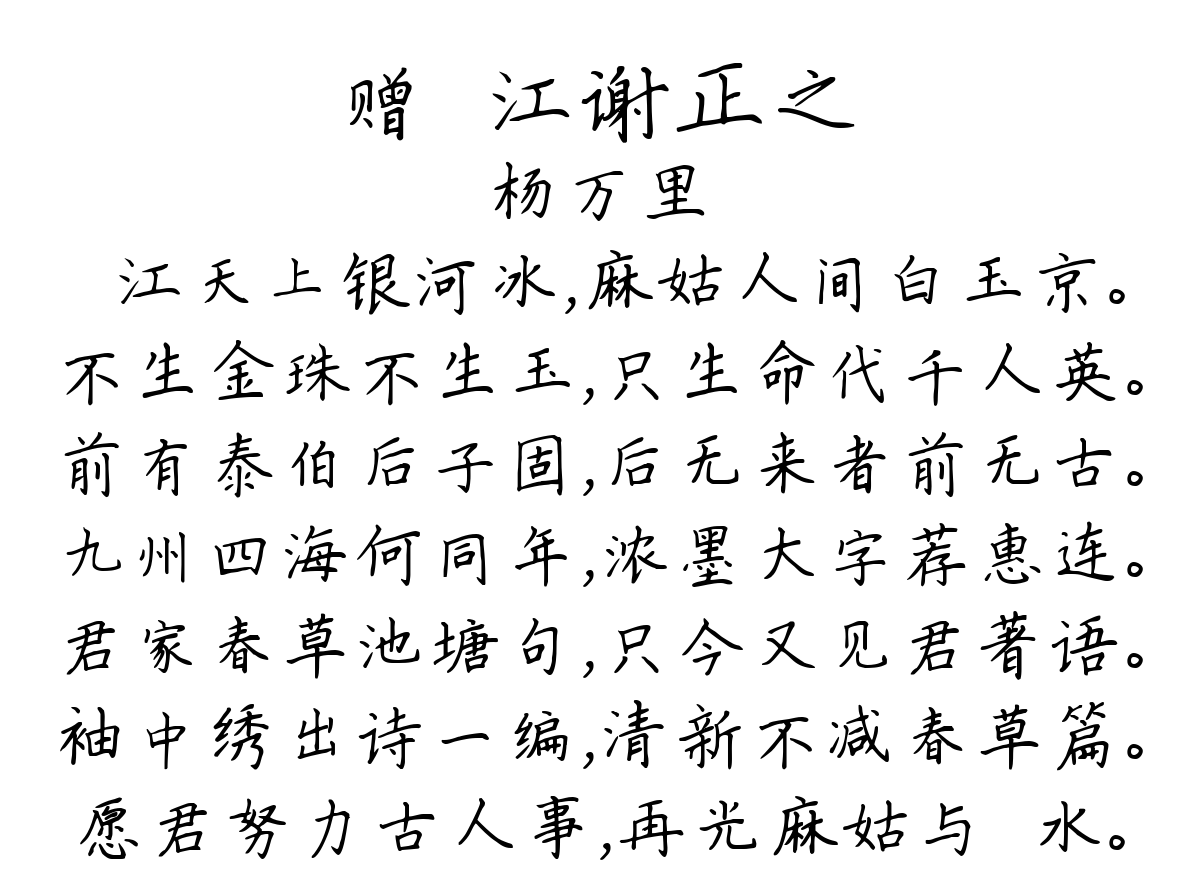 赠 江谢正之
杨万里
江天上银河冰,麻姑人间白玉京。
不生金珠不生玉,只生命代千人英。
前有泰伯后子固,后无来者前无古。
九州四海何同年,浓墨大字荐惠连。
君家春草池塘句,只今又见君著语。
袖中绣出诗一编,清新不减春草篇。
愿君努力古人事,再光麻姑与 水。